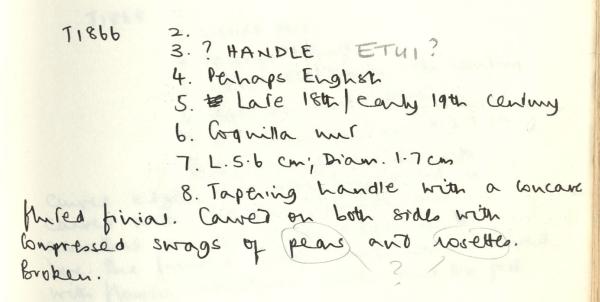 T1866 2.
3. ? HANDLE ETUI?
4. Perhaps English
5. Late 18th/early 19th century
6. Coquilla nut
7. L. 5.6 cm; Diam. 1.7 cm
8. Tapering handle with a concave
fluted finial. Carved on both sides with
compressed swags of pears and rosettes.
Broken. ?